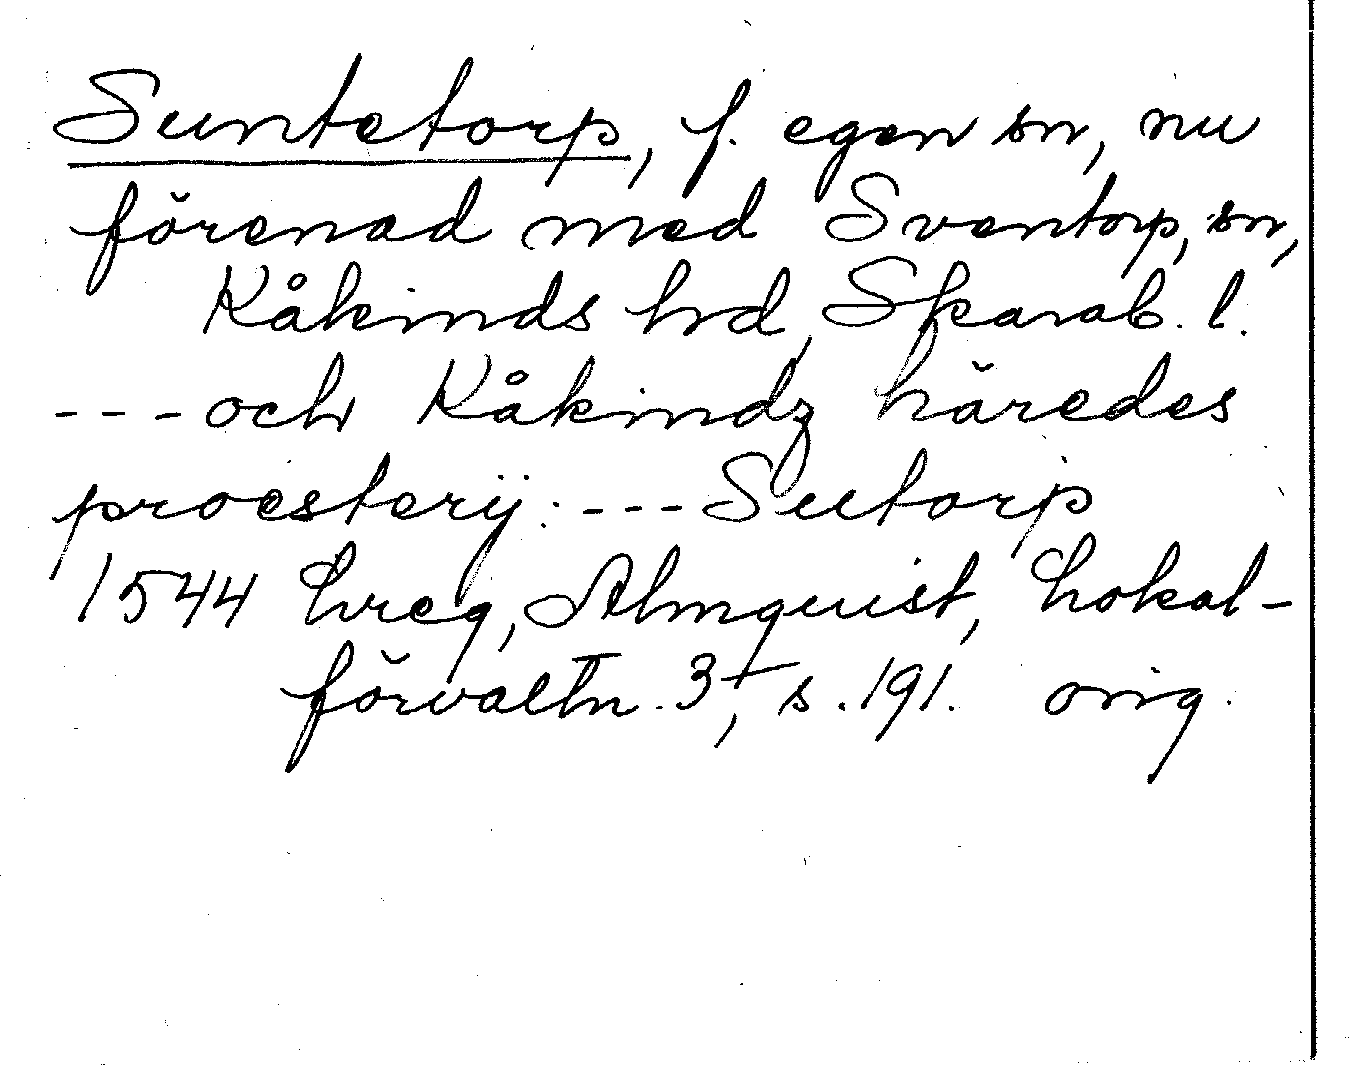 Suntetorp, f. egen sn, nu
förenad med Sventorp, sn,
Kåkinds hd, Skarab. l.
--- och Kåkindz häredes
proesterij: --- Sutorp
1544 Lvreg, Almquist, Lokal-
förvaltn. 3, s. 191. orig.